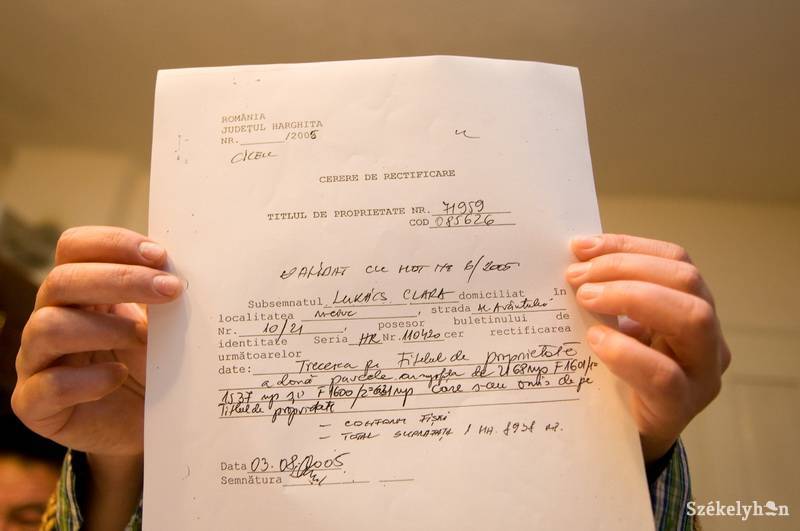 ROMÂNIA
JUDEŢUL HARGHITA
NR.______/2005
CICEU
CERERE DE RECTIFICARE
TITLUL DE PROPRIETATE NR. 71959
COD 085626
VALIDAT CU HOT NR 6/2005
Subsemnatul LUKÁCS CLARA domiciliat în
localitatea M-CIUC, strada Avântului
Nr. 10/21, posesor buletinului de
identitate Seria HR Nr. 110420 cer rectificarea
următoarelor
date: Trecerea pe Titlul de proprietate
a două parcele de F 1601/
1537 mp și F 1600/2 mp care s-au omis de pe
Titlul de proprietate
– CONFORM FIȘEI
– TOTAL SUPRAFAȚA 1 HA. 8938 MP.
Data 03.08/2005
Semnătura
Székelyhon